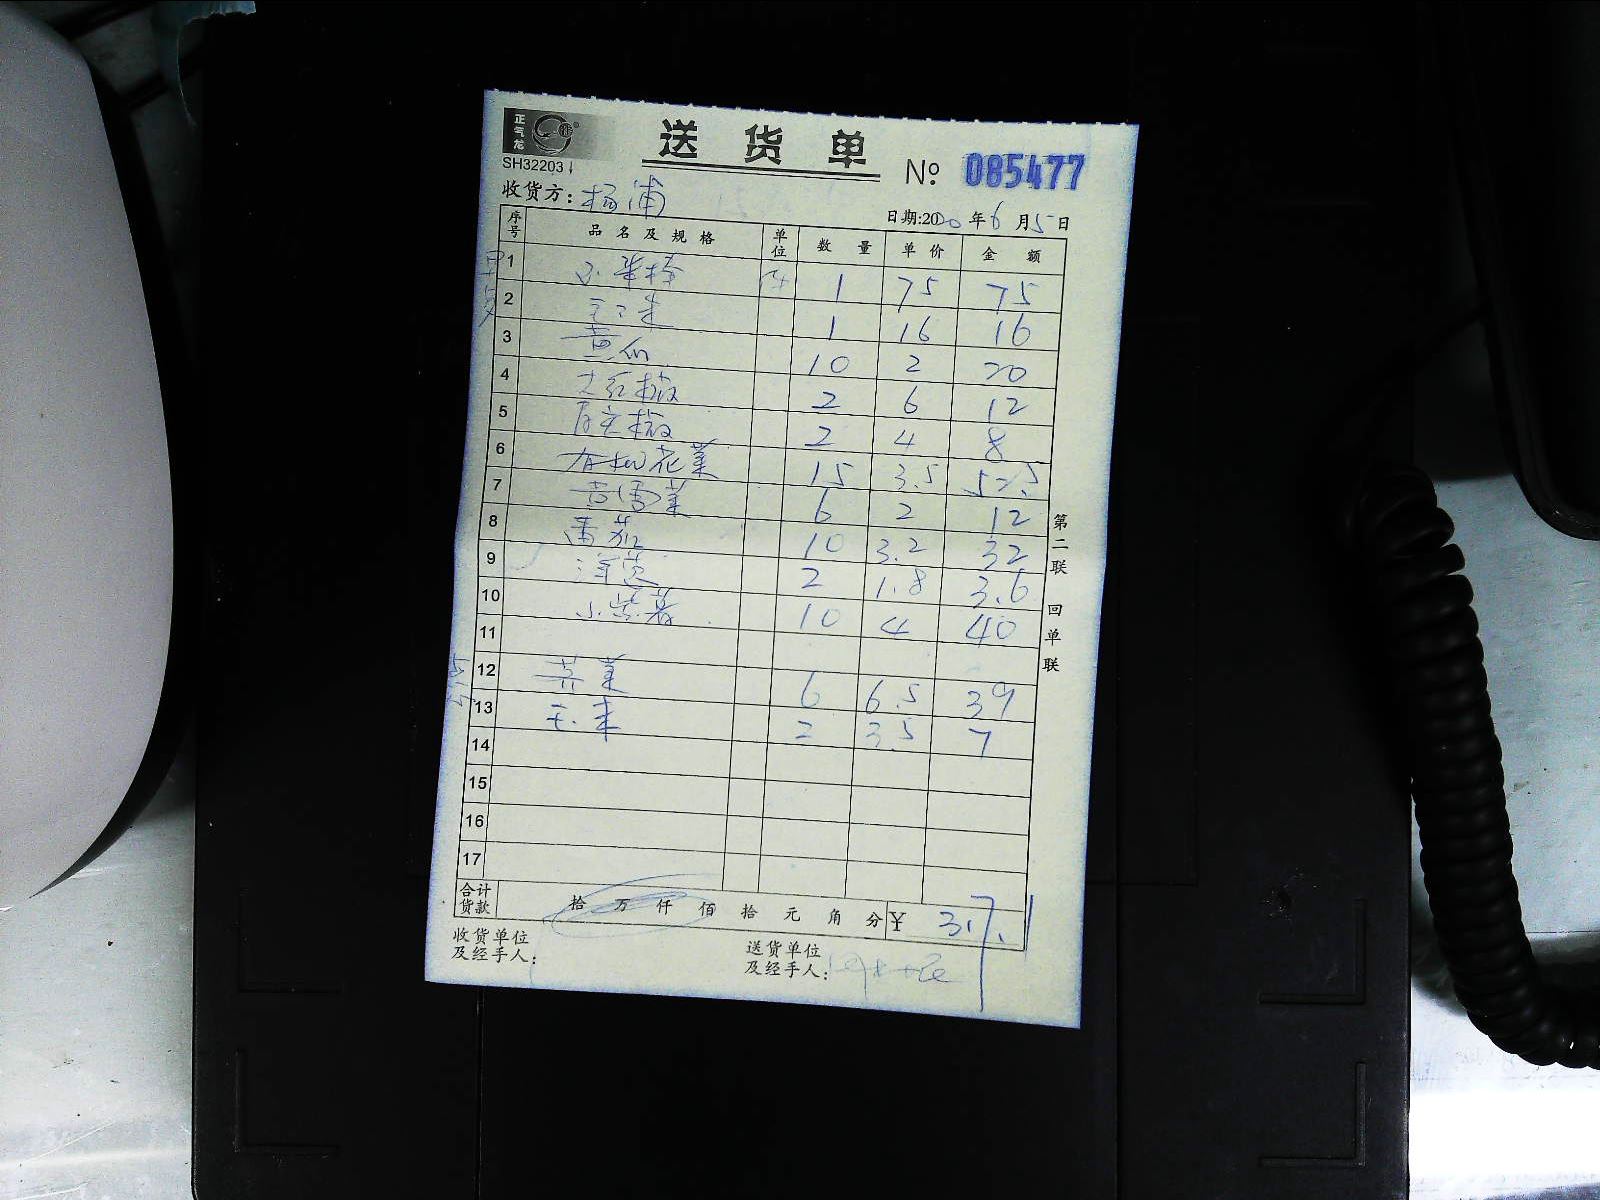 正气龙
SH32203
送货单 № 085477
收货方: 杨浦
日期:2020年6月5日
序号 品名及规格 单位 数量 单价 金额
1 小米椒 件 1 75 75
2 1 16 16
3 黄瓜 10 2 20
4 大红椒 2 6 12
5 2 4 8
6 有机花菜 15 3.5 52.5
7 6 2 12
8 番茄 10 3.2 32
9 洋葱 2 1.8 3.6
10 小紫薯 10 4 40
11
12 芥菜 6 6.5 39
13 玉米 2 3.5 7
14
15
16
17
合计货款 拾万仟佰拾元角分 ¥ 317.1
收货单位及经手人:
送货单位及经手人:
第二联 回单联